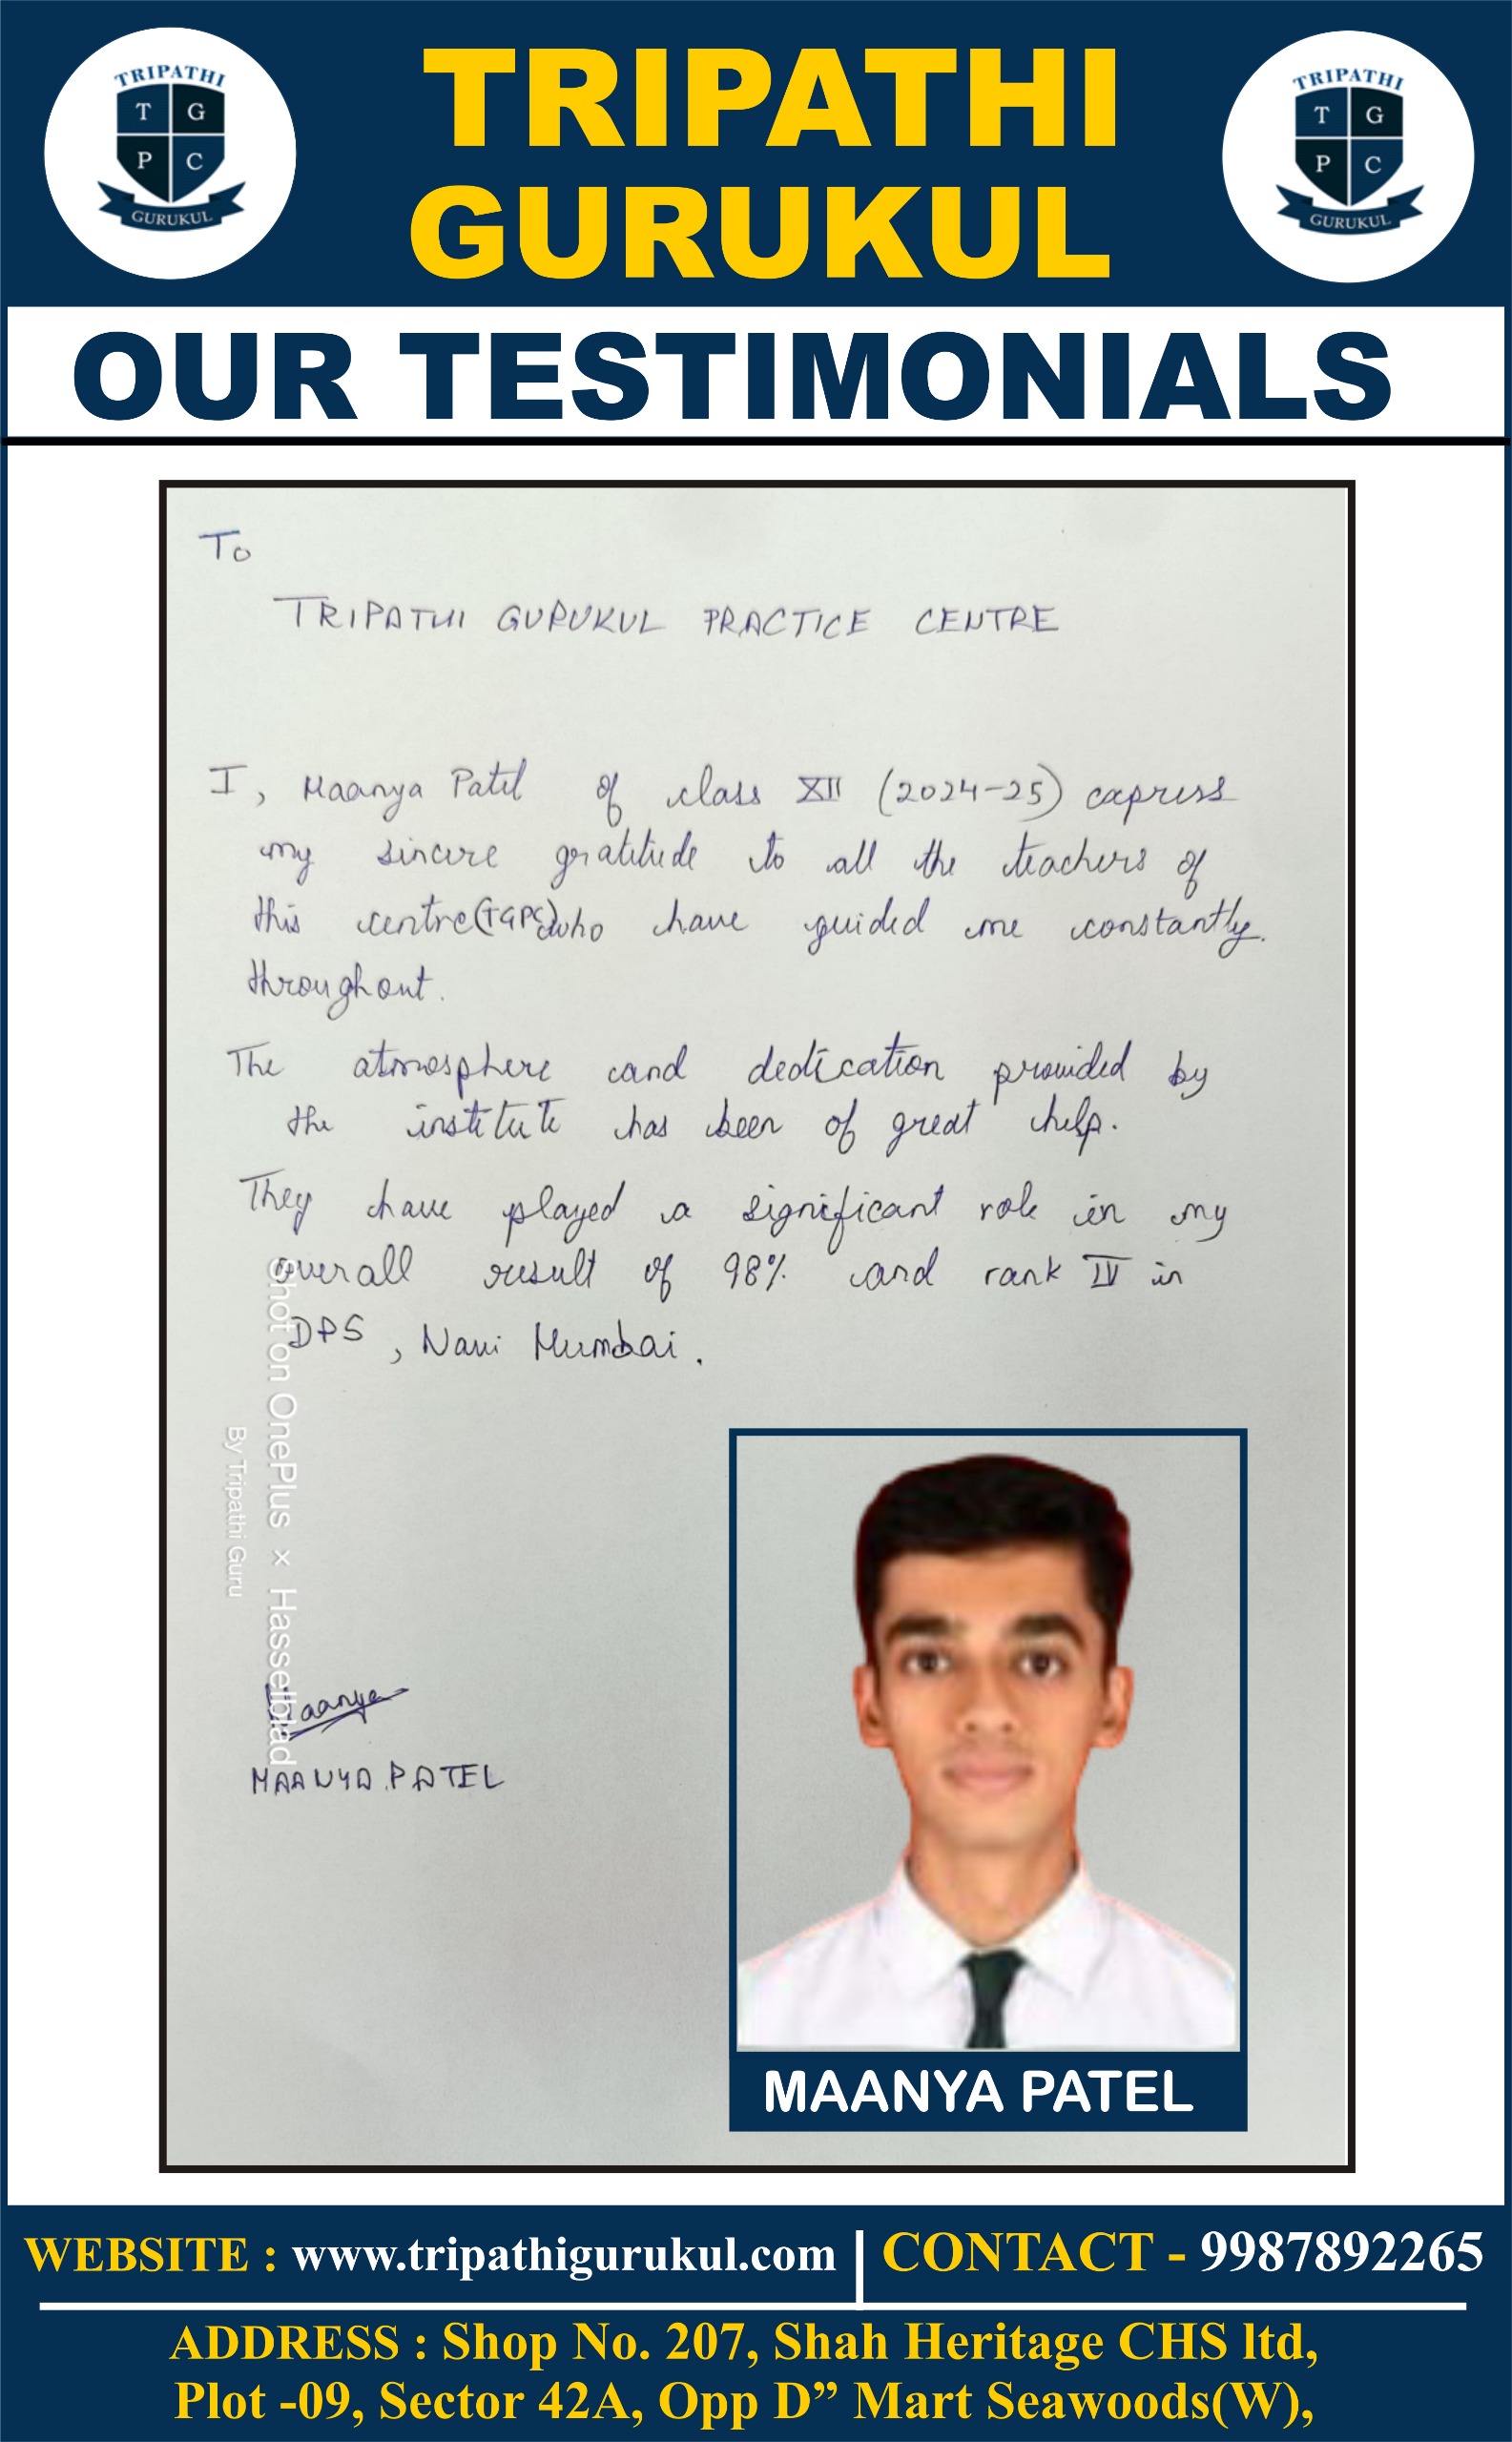 TRIPATHI
T G
P C
GURUKUL
TRIPATHI
GURUKUL
TRIPATHI
T G
P C
GURUKUL
OUR TESTIMONIALS
To
TRIPATHI GURUKUL PRACTICE CENTRE
I, Maanya Patel of class XII (2024-25) express
my sincere gratitude to all the teachers of
this centre(TGPC)who have guided me constantly
throughout.
The atmosphere and dedication provided by
the institute has been of great help.
They have played a significant role in my
overall result of 98% and rank IV in
DPS, Navi Mumbai.
Shot on OnePlus × Hasselblad
By Tripathi Guru
Maanya
MAANYA PATEL
MAANYA PATEL
WEBSITE : www.tripathigurukul.com | CONTACT - 9987892265
ADDRESS : Shop No. 207, Shah Heritage CHS ltd,
Plot -09, Sector 42A, Opp D” Mart Seawoods(W),